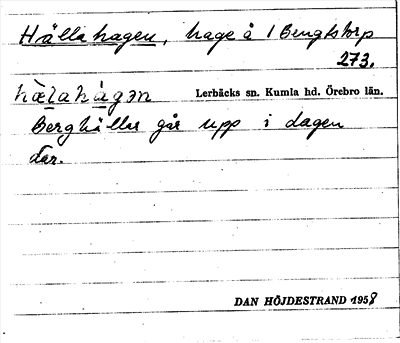 Hällahagen, hage å 1 Bengtstorp
273.
hæ̀lahàgən Lerbäcks sn. Kumla hd. Örebro län.
Berghällar går upp i dagen
där.
DAN HÖJDESTRAND 1958